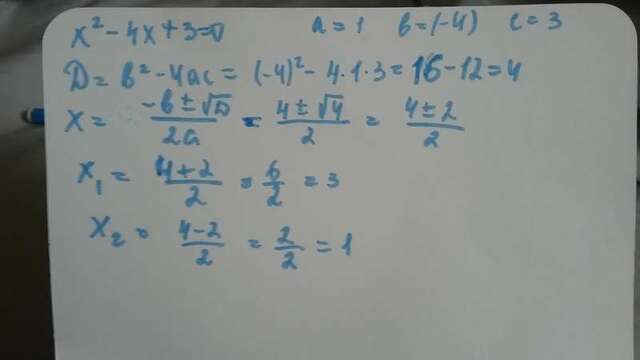 x² - 4x + 3 = 0 a = 1 b = (-4) c = 3
D = b² - 4ac = (-4)² - 4·1·3 = 16 - 12 = 4
x = (-b ± √D)/(2a) = (4 ± √4)/2 = (4 ± 2)/2
x₁ = (4+2)/2 = 6/2 = 3
x₂ = (4-2)/2 = 2/2 = 1